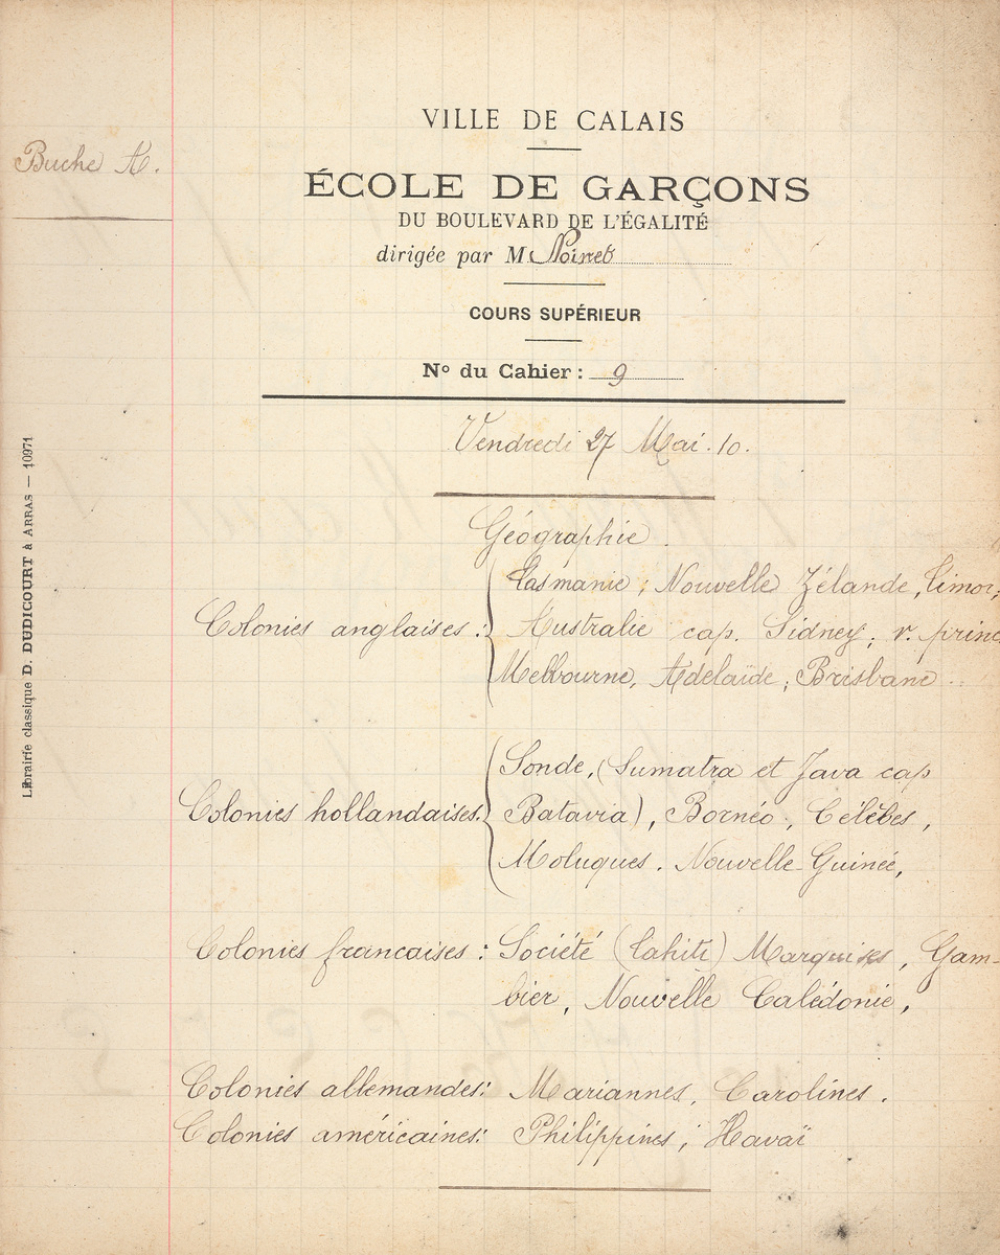 VILLE DE CALAIS
Buche A.
ÉCOLE DE GARÇONS
DU BOULEVARD DE L'ÉGALITÉ
dirigée par M. Poiret
COURS SUPÉRIEUR
Nº du Cahier : 9
Vendredi 27 Mai. 10.
Librairie classique D. DUDICOURT à ARRAS — 10971
Géographie.
Tasmanie ; Nouvelle Zélande, Timor;
Colonies anglaises : Australie cap. Sidney ; v. princ
Melbourne, Adelaïde ; Brisbane.
Sonde, (Sumatra et Java cap
Colonies hollandaises. Batavia), Bornéo ; Célèbes,
Moluques. Nouvelle Guinée,
Colonies francaises : Société (Tahiti) Marquises, Gam-
bier, Nouvelle Calédonie,
Colonies allemandes : Mariannes, Carolines.
Colonies américaines : Philippines ; Havaï